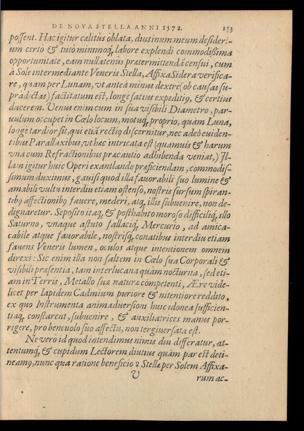 DE NOVA STELLA ANNI 1572. 153
possent. Hac igitur cælitus oblata, diutinum meum desideri-
um certò & tutò minimoq; labore explendi commodissima
opportunitate, eam nullatenus prætermittendā censui, cum
à Sole intermediante Veneris Stella, Affixa Sidera verifica-
re, quàm per Lunam, vt anteà minus dextrè (ob causas su-
prà dictas) factitatum est, longè satius expeditiq; & certius
ducerem. Venus enim cum in sua visibili Diametro, par-
uulum occupet in Cœlo locum, motuq; proprio, quàm Luna,
longè tardior sit, qui etiā rectiq; discernitur, nec adeò euiden-
tibus Parallaxibus, vt hæc intricata est (quamuis & harum
vnà cum Refractionibus præcautio adhibenda veniat,)
lam igitur huic Operi exantlando præficiendam, commodis-
simum duximus, gauisi quod illa fauorabili suo lumine &
amabili vultu interdiu etiam ostenso, nostris sursum spiran-
tibq; affectionibq; fauere, mederi, aūq; illis subuenire, non de-
dignaretur. Seposito itaq; & posthabito moroso difficiliq; illo
Saturno, vnaque astuto fallaciq; Mercurio, ad amica-
cabile atque fauorabile, nostrisq; conatibus interdiu etiam
fauens Veneris lumen, oculos atque intentionem omnem
direxi: Sic enim illa non saltem in Cœlo sua Corporali &
visibili præsentia, tam interlucana quàm nocturna, sed eti-
am in Terris, Metallo suæ naturæ competenti, Ære vide-
licet per lapidem Cadmium puriore & nitentiore reddito,
ex quo Instrumenta animaduersioni huic idonea sufficien-
tiaq; constarent, subuenire, & auxiliatrices manus por-
rigere, pro beneuolo suo affectu, non tergiuersata est.
Ne verò id quod intendimus nimis diu differatur, at-
tentumq; & cupidum Lectorem diutius quàm par est deti-
neamq; nunc qua ratione beneficio ♀ Stellæ per Solem Affixa-
V rum ac-